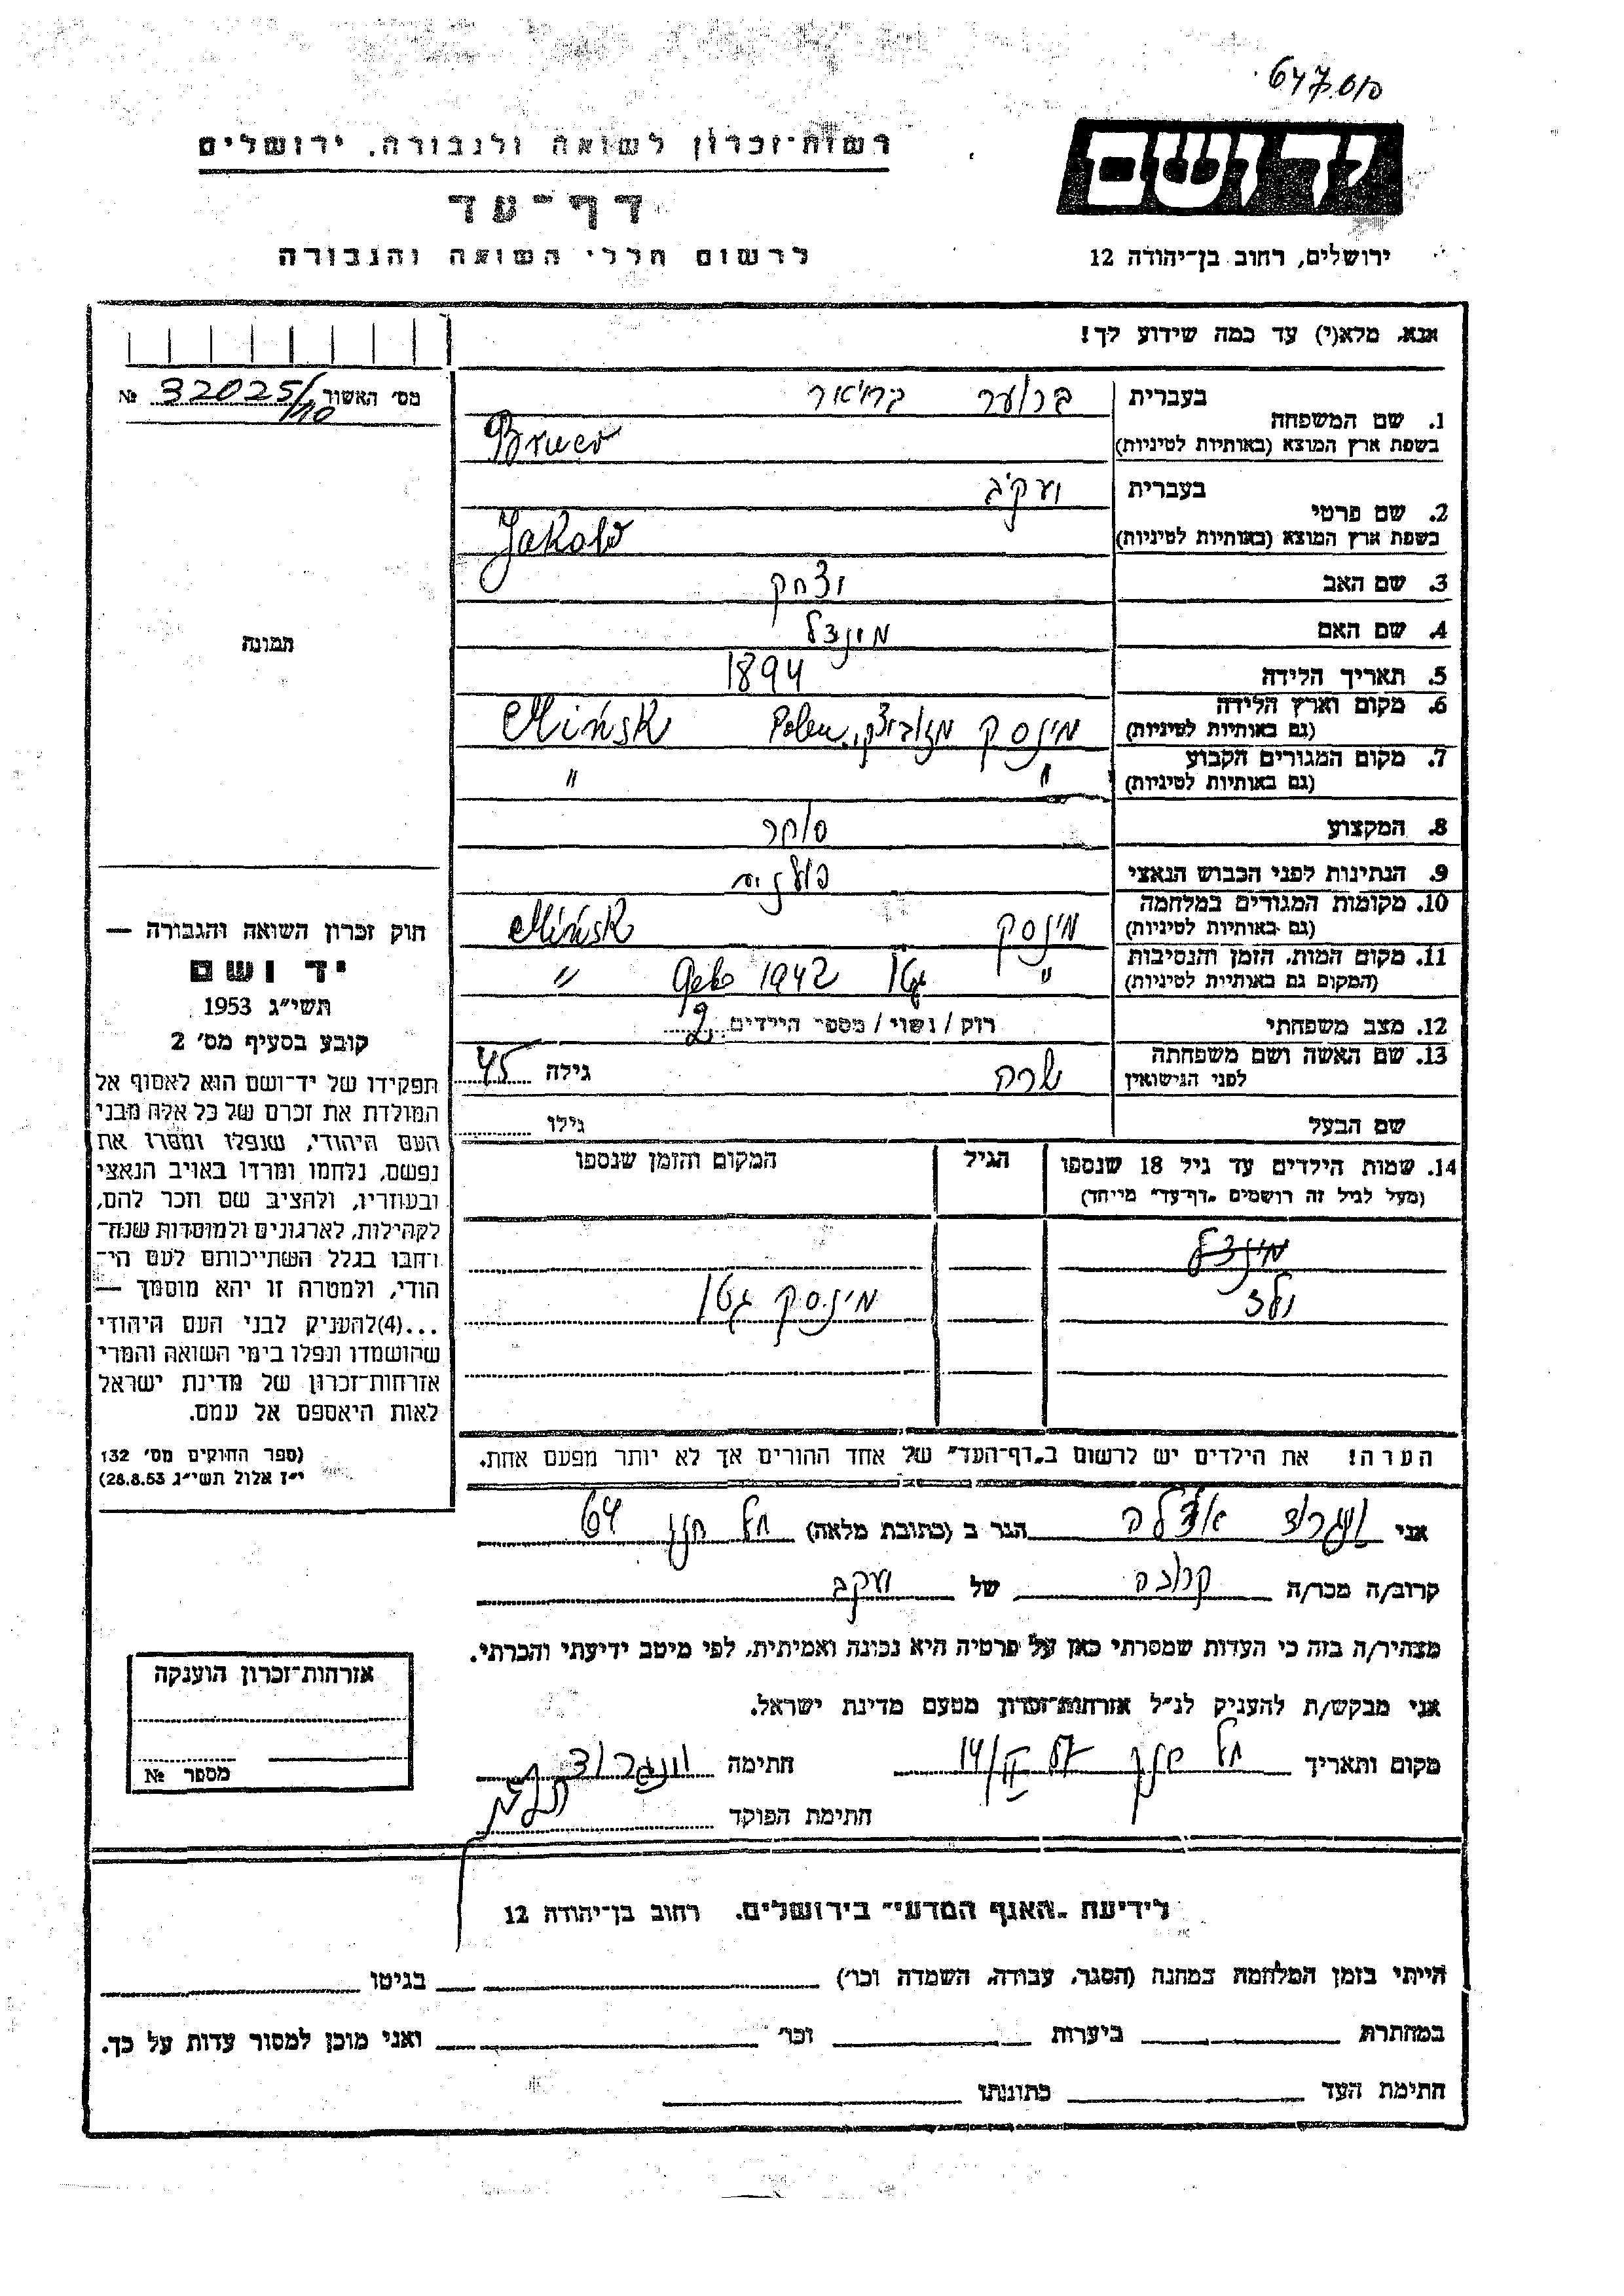 רשות־זכרון לשואה ולגבורה, ירושלים
דף־עד
לרשום חללי השואה והגבורה
יד ושם
ירושלים, רחוב בן־יהודה 12
אנא, מלא(י) עד כמה שידוע לך!
מס' האשור 32025/ №
1. שם המשפחה
בעברית ברוער
בשפת ארץ המוצא (באותיות לטיניות) Bruer
2. שם פרטי
בעברית יעקב
בשפת ארץ המוצא (באותיות לטיניות) Jakob
3. שם האב יצחק
4. שם האם
5. תאריך הלידה 1894
6. מקום וארץ הלידה
(גם באותיות לטיניות) מינסק מזוביצק, Polen Mińsk
7. מקום המגורים הקבוע
(גם באותיות לטיניות) " "
8. המקצוע סוחר
9. הנתינות לפני הכבוש הנאצי
10. מקומות המגורים במלחמה
(גם באותיות לטיניות) מינסק Mińsk
11. מקום המות, הזמן והנסיבות
(המקום גם באותיות לטיניות) " גטו 1942 "
12. מצב משפחתי רווק / נשוי / מספר הילדים 2
13. שם האשה ושם משפחתה
לפני הנישואין שרה גילה 45
שם הבעל גילו
14. שמות הילדים עד גיל 18 שנספו הגיל המקום והזמן שנספו
(מעל לגיל זה רושמים "דף־עד" מייחד)
מינסק גטו
הערה! את הילדים יש לרשום ב"דף־העד" של אחד ההורים אך לא יותר מפעם אחת.
תמונה
חוק זכרון השואה והגבורה —
יד ושם
תשי"ג 1953
קובע בסעיף מס' 2
תפקידו של יד־ושם הוא לאסוף אל
המולדת את זכרם של כל אלה מבני
העם היהודי, שנפלו ומסרו את
נפשם, נלחמו ומרדו באויב הנאצי
ובעוזריו, ולהציב שם וזכר להם,
לקהילות, לארגונים ולמוסדות שנח־
רחבו בגלל השתייכותם לעם הי־
הודי, ולמטרה זו יהא מוסמך —
...(4)להעניק לבני העם היהודי
שהושמדו ונפלו בימי השואה והמרי
אזרחות־זכרון של מדינת ישראל
לאות היאספם אל עמם.
(ספר החוקים מס' 132
י"ז אלול תשי"ג 28.8.53)
אני הגר ב (כתובת מלאה) תל חנן 64
קרוב/ה מכר/ה קרובה של יעקב
מצהיר/ה בזה כי העדות שמסרתי כאן על פרטיה היא נכונה ואמיתית, לפי מיטב ידיעתי והכרתי.
אני מבקש/ת להעניק לנ"ל אזרחות־זכרון מטעם מדינת ישראל.
מקום ותאריך תל חנן חתימה
חתימת הפוקד
אזרחות־זכרון הוענקה
מספר №
לידיעת "האגף המדעי" בירושלים. רחוב בן־יהודה 12
הייתי בזמן המלחמה במחנה (הסגר, עבודה, השמדה וכו') בגיטו
במחתרת ביערות וכו' ואני מוכן למסור עדות על כך.
חתימת העד כתובתו